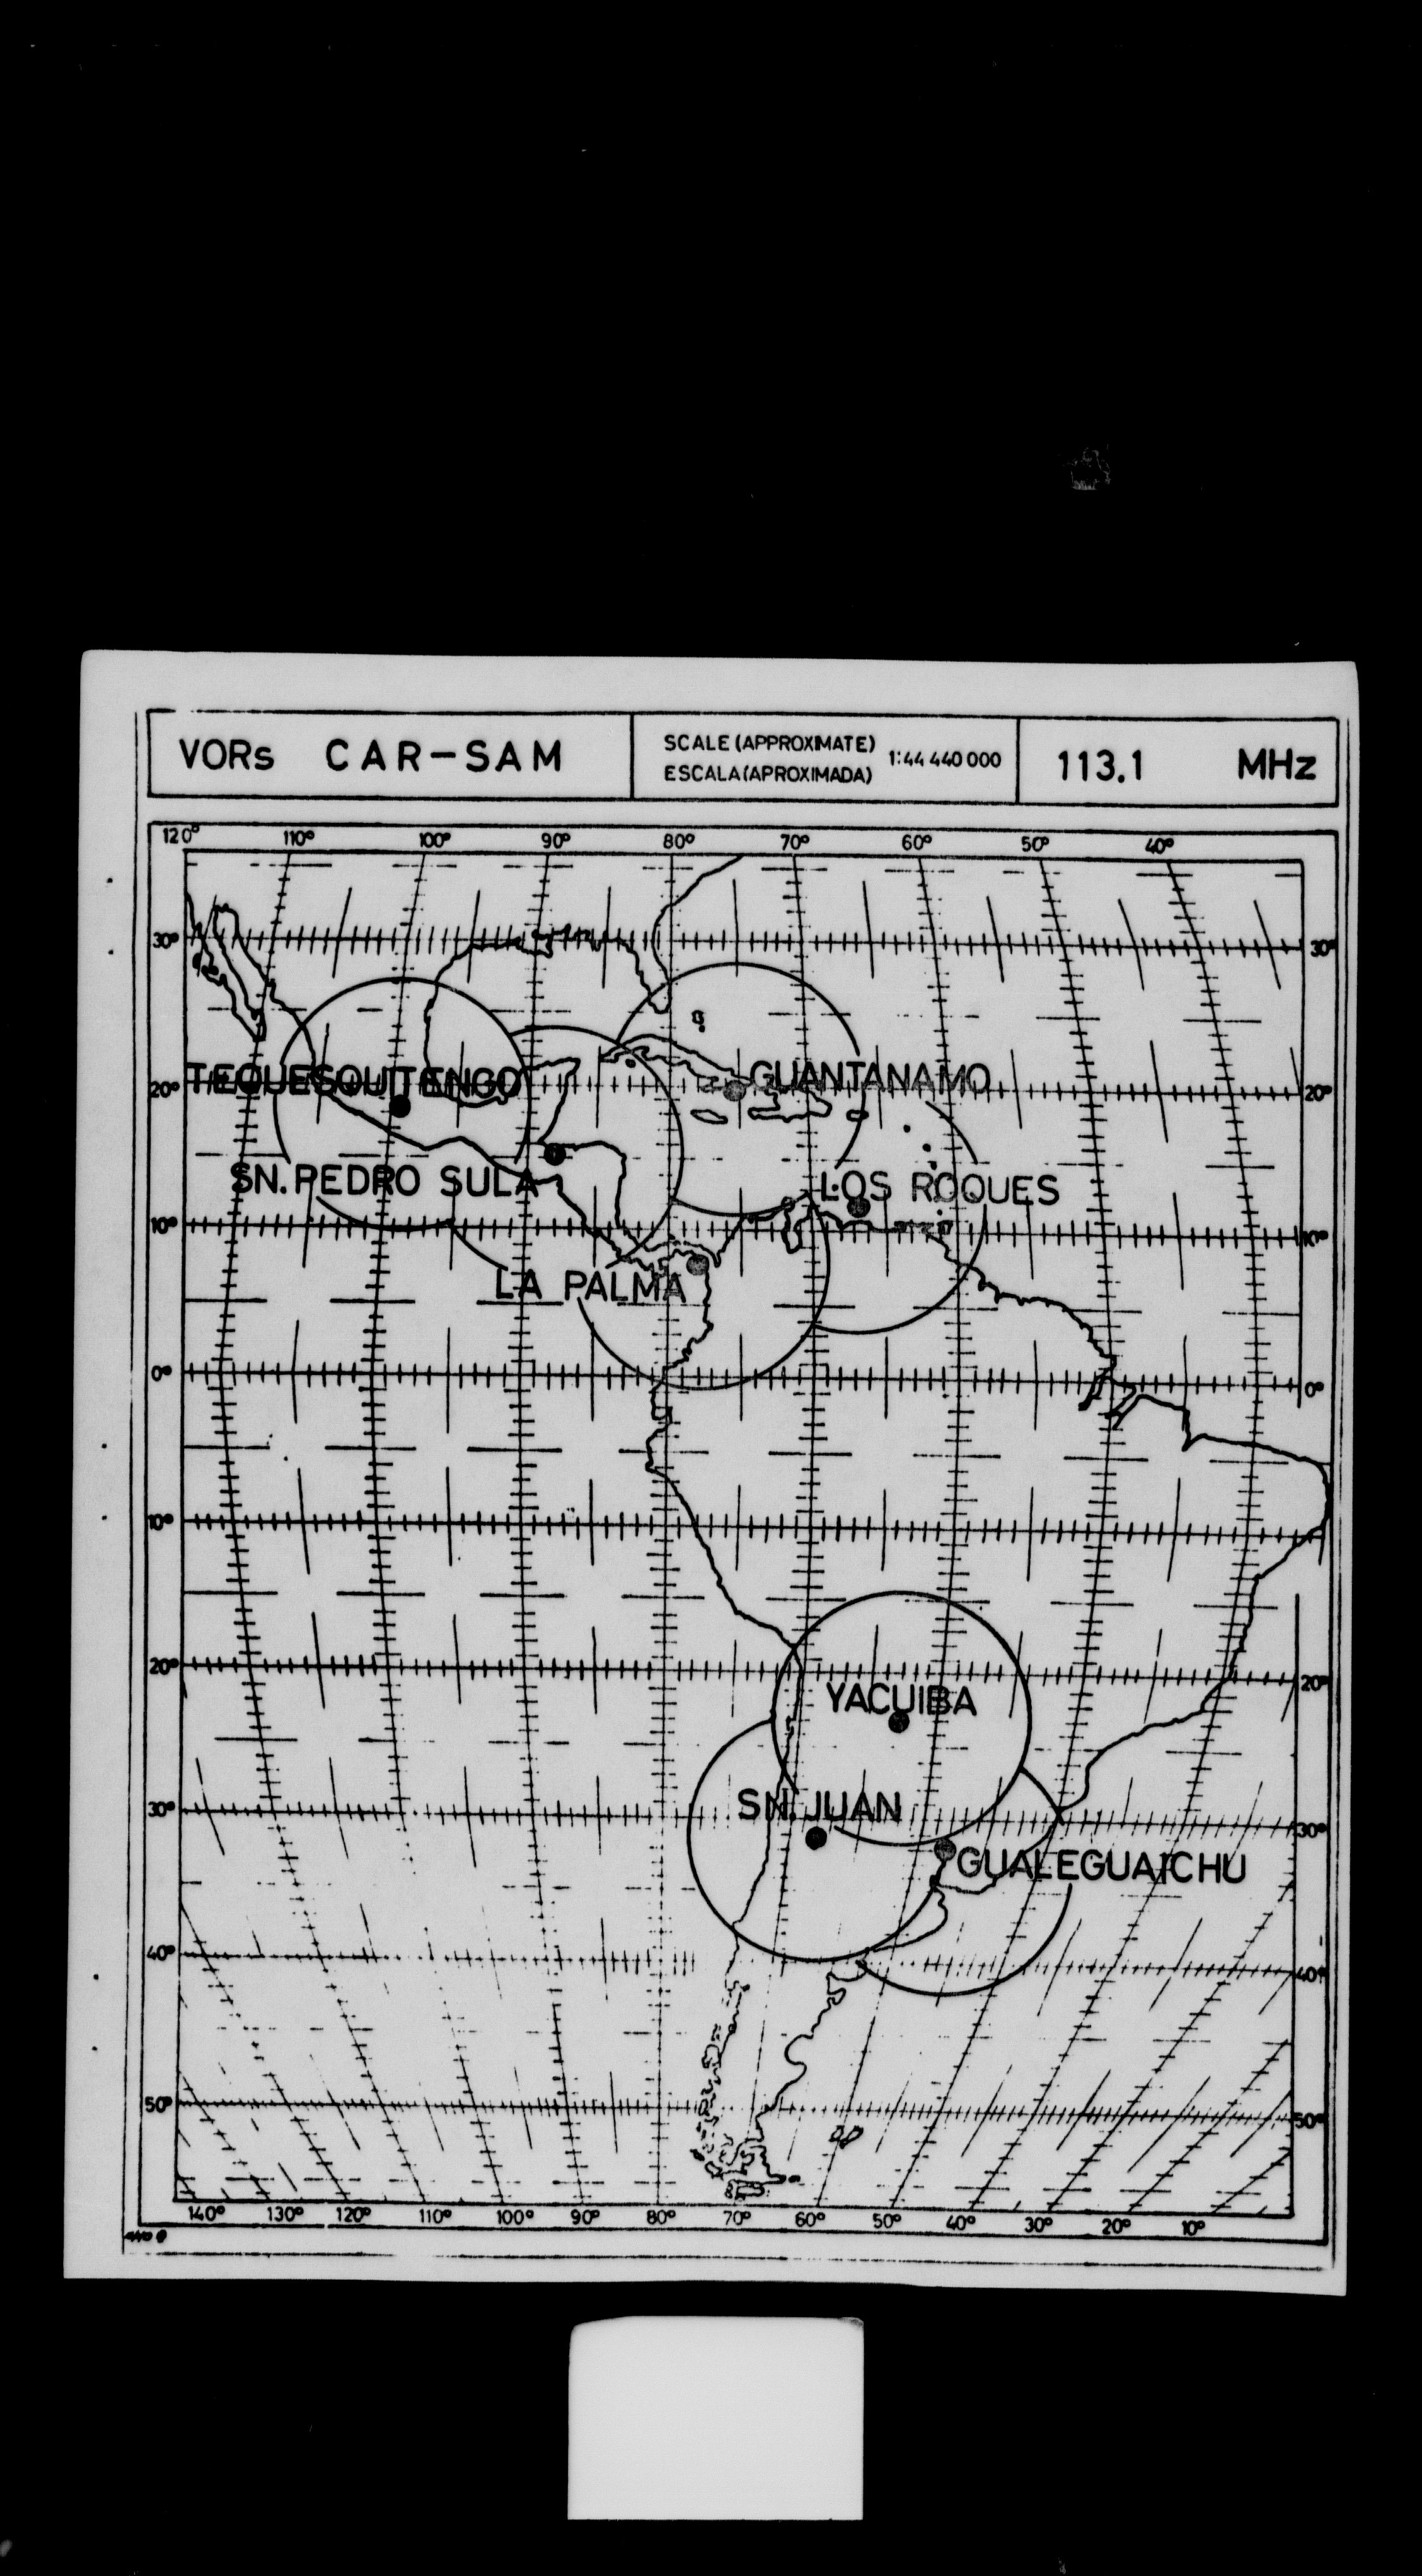 VORs CAR-SAM
SCALE (APPROXIMATE)
ESCALA (APROXIMADA)
1:44 440 000
113.1 MHz
120° 110° 100° 90° 80° 70° 60° 50° 40°
30° 30°
TEQUESQUITENGO
GUANTANAMO
20° 20°
SN. PEDRO SULA
LOS ROQUES
10° 10°
LA PALMA
0° 0°
10°
20° 20°
YACUIBA
SN. JUAN
30° 30°
GUALEGUAICHU
40° 40°
50° 50°
140° 130° 120° 110° 100° 90° 80° 70° 60° 50° 40° 30° 20° 10°